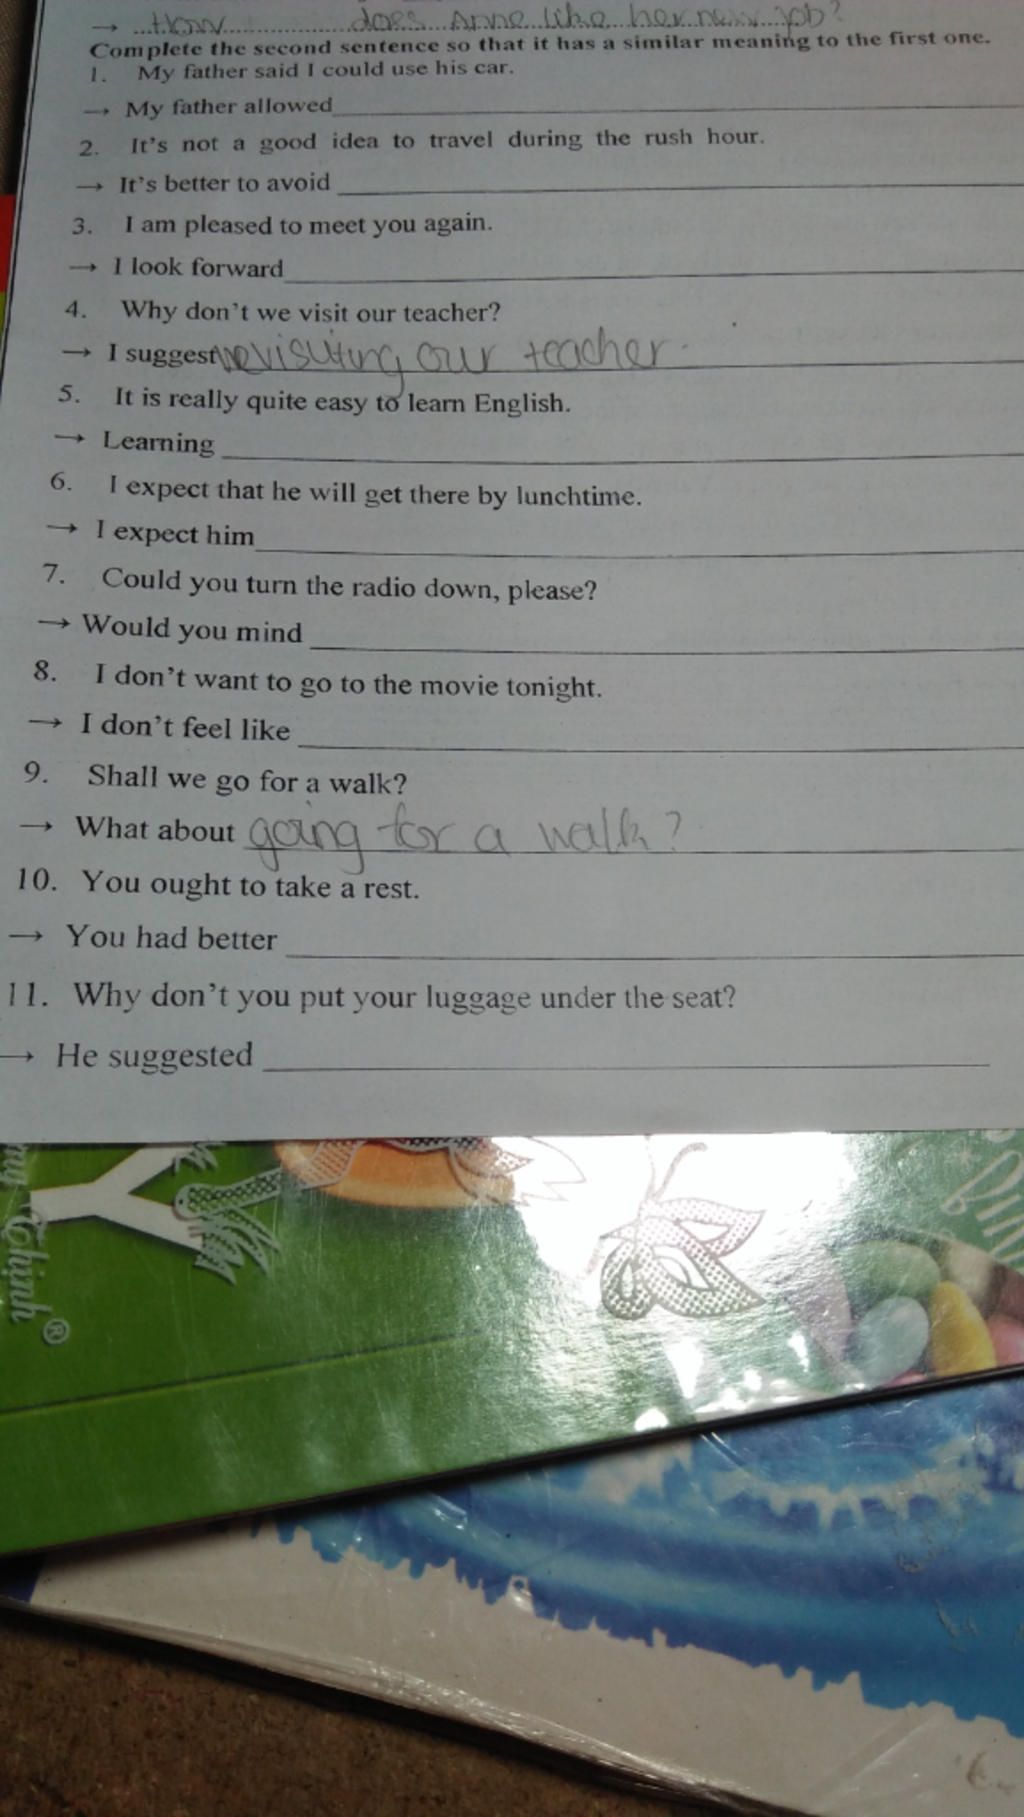 → How does Anne like her new job?
Complete the second sentence so that it has a similar meaning to the first one.
1. My father said I could use his car.
→ My father allowed
2. It's not a good idea to travel during the rush hour.
→ It's better to avoid
3. I am pleased to meet you again.
→ I look forward
4. Why don't we visit our teacher?
→ I suggest our teacher.
5. It is really quite easy to learn English.
→ Learning
6. I expect that he will get there by lunchtime.
→ I expect him
7. Could you turn the radio down, please?
→ Would you mind
8. I don't want to go to the movie tonight.
→ I don't feel like
9. Shall we go for a walk?
→ What about going for a walk?
10. You ought to take a rest.
→ You had better
11. Why don't you put your luggage under the seat?
→ He suggested